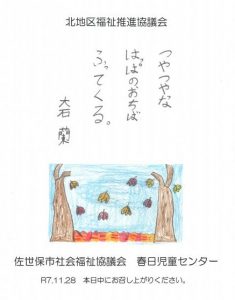 北地区福祉推進協議会
つやつやな
はっぱのおちば
ふってくる。
大石 蘭
佐世保市社会福祉協議会　春日児童センター
R7.11.28　本日中にお召し上がりください。